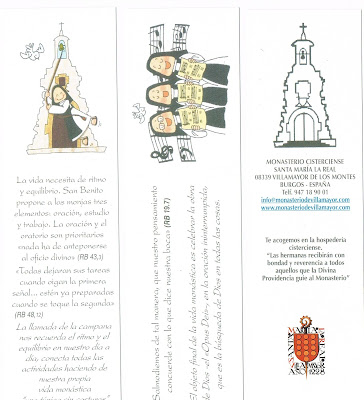 La vida necesita de ritmo
y equilibrio. San Benito
propone a los monjes tres
elementos: oración, estudio
y trabajo. La oración y el
oratorio son prioritarios
"nada ha de anteponerse
al oficio divino" (RB 43,3)
«Todos dejaran sus tareas
cuando oigan la primera
señal... estén ya preparados
cuando se toque la segunda»
(RB 48,12)
La llamada de la campana
nos recuerda el ritmo y el
equilibrio en nuestro día a
día; conecta todas las
actividades haciendo de
nuestra propia
vida monástica
Salmodiemos de tal manera que nuestro pensamiento
concuerde con lo que dice nuestra boca» (RB 19,7)
El objeto final de la vida monástica es celebrar la obra
de Dios -el «Opus Dei»- en la oración ininterrumpida;
que es la búsqueda de Dios en todas las cosas.
MONASTERIO CISTERCIENSE
SANTA MARÍA LA REAL
08339 VILLAMAYOR DE LOS MONTES
BURGOS - ESPAÑA
Telf. 947 18 90 01
info@monasteriodevillamayor.com
www.monasteriodevillamayor.com
Te acogemos en la hospedería
cisterciense.
"Las hermanas recibirán con
bondad y reverencia a todos
aquellos que la Divina
Providencia guíe al Monasterio"